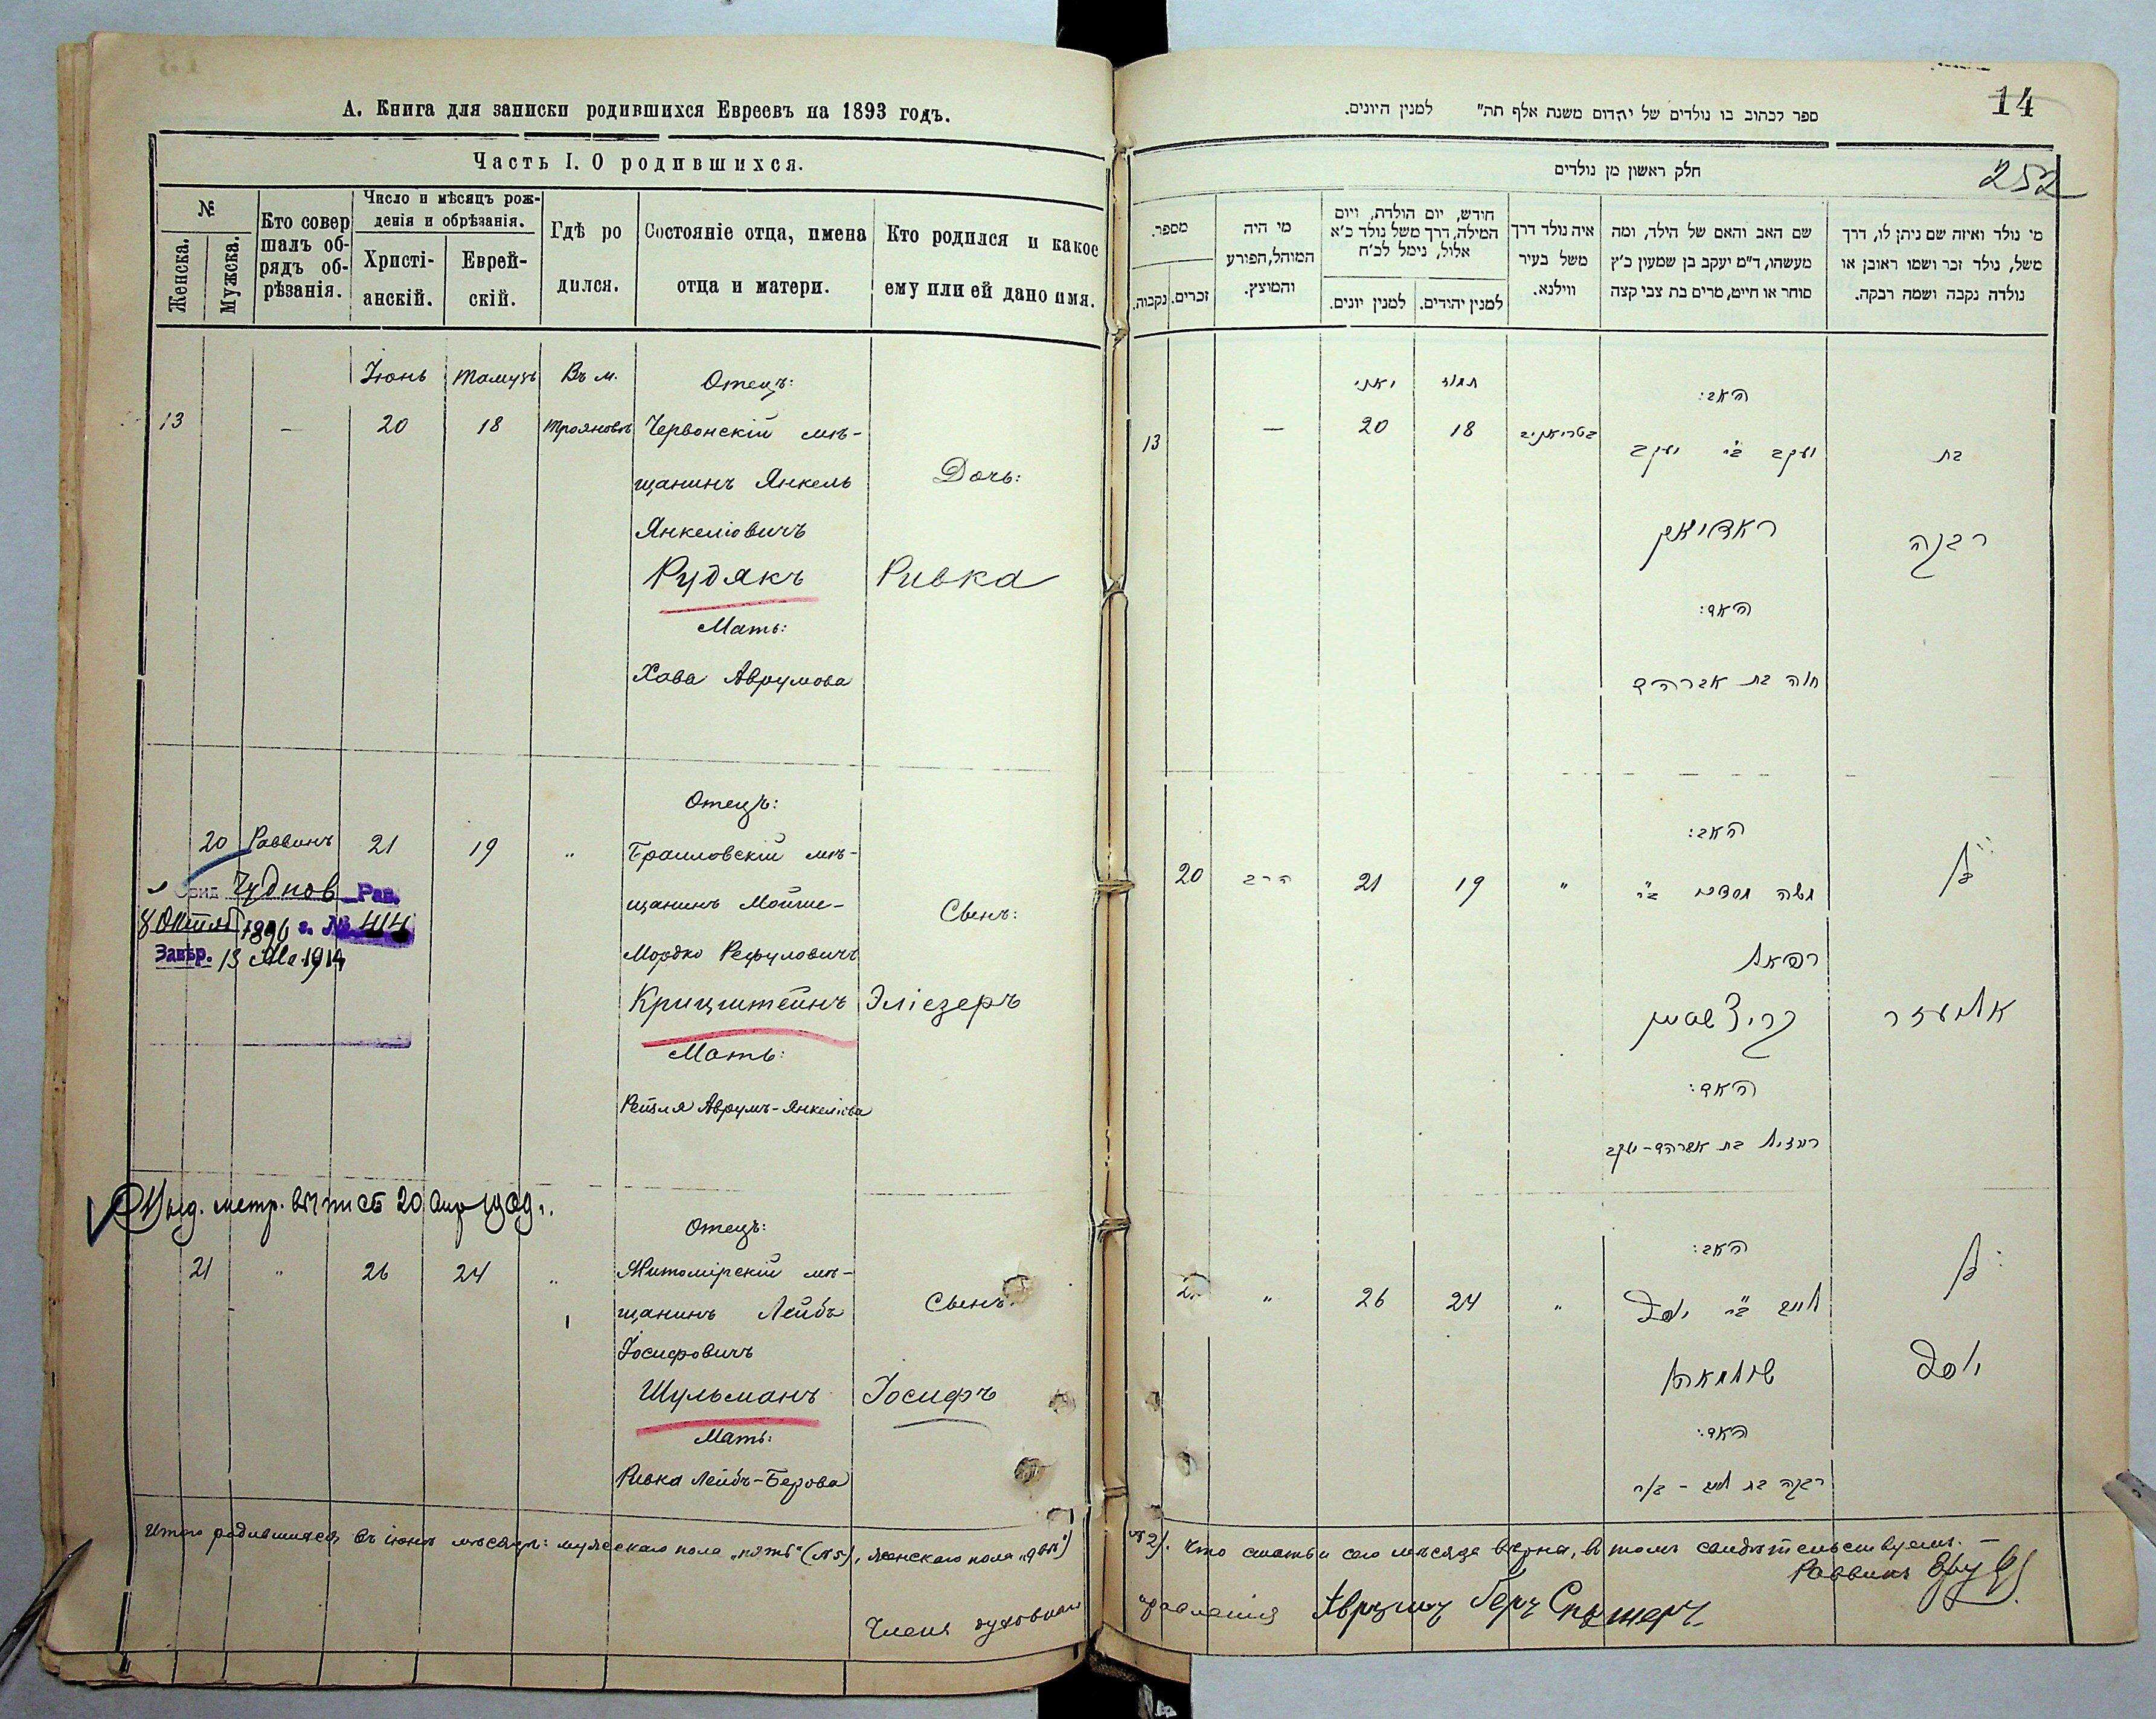 А. Книга для записки родившихся Евреевъ на 1893 годъ.
Часть I. О родившихся.
№
Женска.
Мужска.
Кто совер
шалъ об-
рядъ об-
рѣзанія.
Число и мѣсяцъ рож-
денія и обрѣзанія.
Христі-
анскій.
Еврей-
скій.
Гдѣ ро
дился.
Состояніе отца, имена
отца и матери.
Кто родился и какое
ему или ей дано имя.
Іюнь Тамузъ Въ м. Отецъ:
13 — 20 18 Трояновѣ Червонскій мѣ-
щанинъ Янкель Дочь:
Янкеліовичъ
Рудякъ Ривка
Мать:
Хава Аврумова
Отецъ:
20 Раввинъ 21 19 " Браиловскій мѣ-
щанинъ Мойше- Сынъ:
Мордко Рефуловичъ
Крицштейнъ Эліезеръ
Мать:
Рейзля Аврумъ-Янкеліева
Свид Чуднов Рав.
8 Октяб 1896 г. № 414
Завѣр. 13 1914
Выд. метр. выпись 20 Апр 1909 г.
Отецъ:
21 " 26 24 " Житомірскій мѣ-
щанинъ Лейбъ Сынъ:
Іосифовичъ
Шульманъ Іосифъ
Мать:
Ривка Лейбъ-Берова
Итого родившихся въ іюнѣ мѣсяцѣ: мужескаго пола „пять" (№ 5), женскаго пола „двѣ"
Члены духовнаго
14
ספר לכתוב בו נולדים של יהדום משנת אלף תה״ למנין היונים.
252
חלק ראשון מן נולדים
מי נולד ואיזה שם ניתן לו, דרך
משל, נולד זכר ושמו ראובן או
נולדה נקבה ושמה רבקה.
שם האב והאם של הילד, ומה
מעשהו, ד״מ יעקב בן שמעון כ׳ץ
סוחר או חייט, מרים בת צבי קצה
איה נולד דרך
משל בעיר
ווילנא.
חודש, יום הולדת, ויום
המילה, דרך משל נולד כ׳א
אלול, נימל לכ׳ח
למנין יהידים.
למנין יונים.
מי היה
המוהל, הפורע
והמוצץ.
מספר.
זכרים.
נקבות.
האב: תמוז יאני
בת יעקב ב״ר יעקב בטריאניב 18 20 — 13
רבקה ראדיאק
האם:
חוה בת אברהם
האב:
בן משה מרדכי ב״ר " 19 21 הרב 20
רפאל
אליעזר קריצשטיין
האם:
רייזיל בת אברהם-יעקב
האב:
בן לייב ב״ר יוסף " 24 26 "
יוסף שולמאן
האם:
רבקה בת לייב - בער
№ 2). Что статьи сего мѣсяца вѣрны, въ томъ свидѣтельствуемъ. —
Раввинъ
правленія Аврумъ Беръ